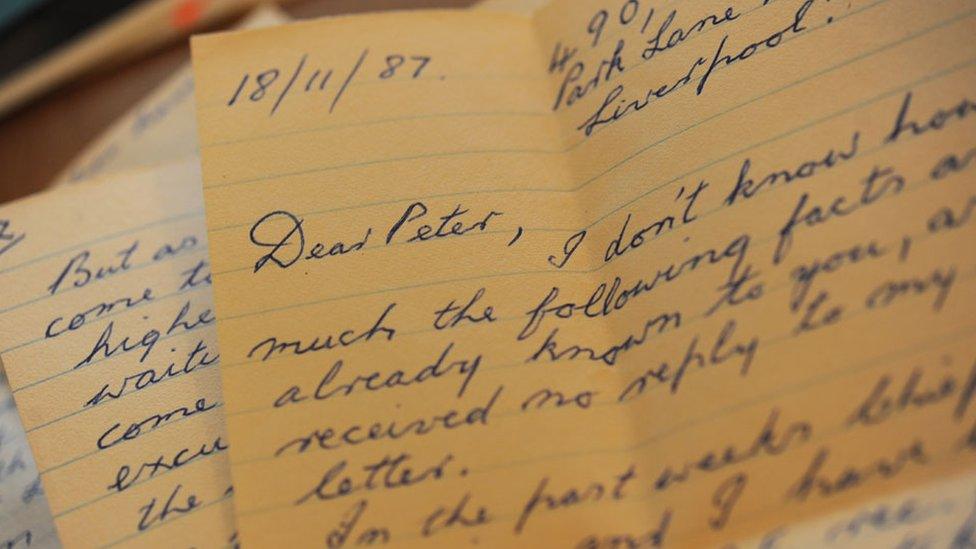 18/11/87.
490,
Park Lane
Liverpool.
Dear Peter,
I don't know how
much the following facts
already known to you,
received no reply to my
letter.
In the past weeks Chief
and I have
But as
come to
highe
waite
come
excu
the